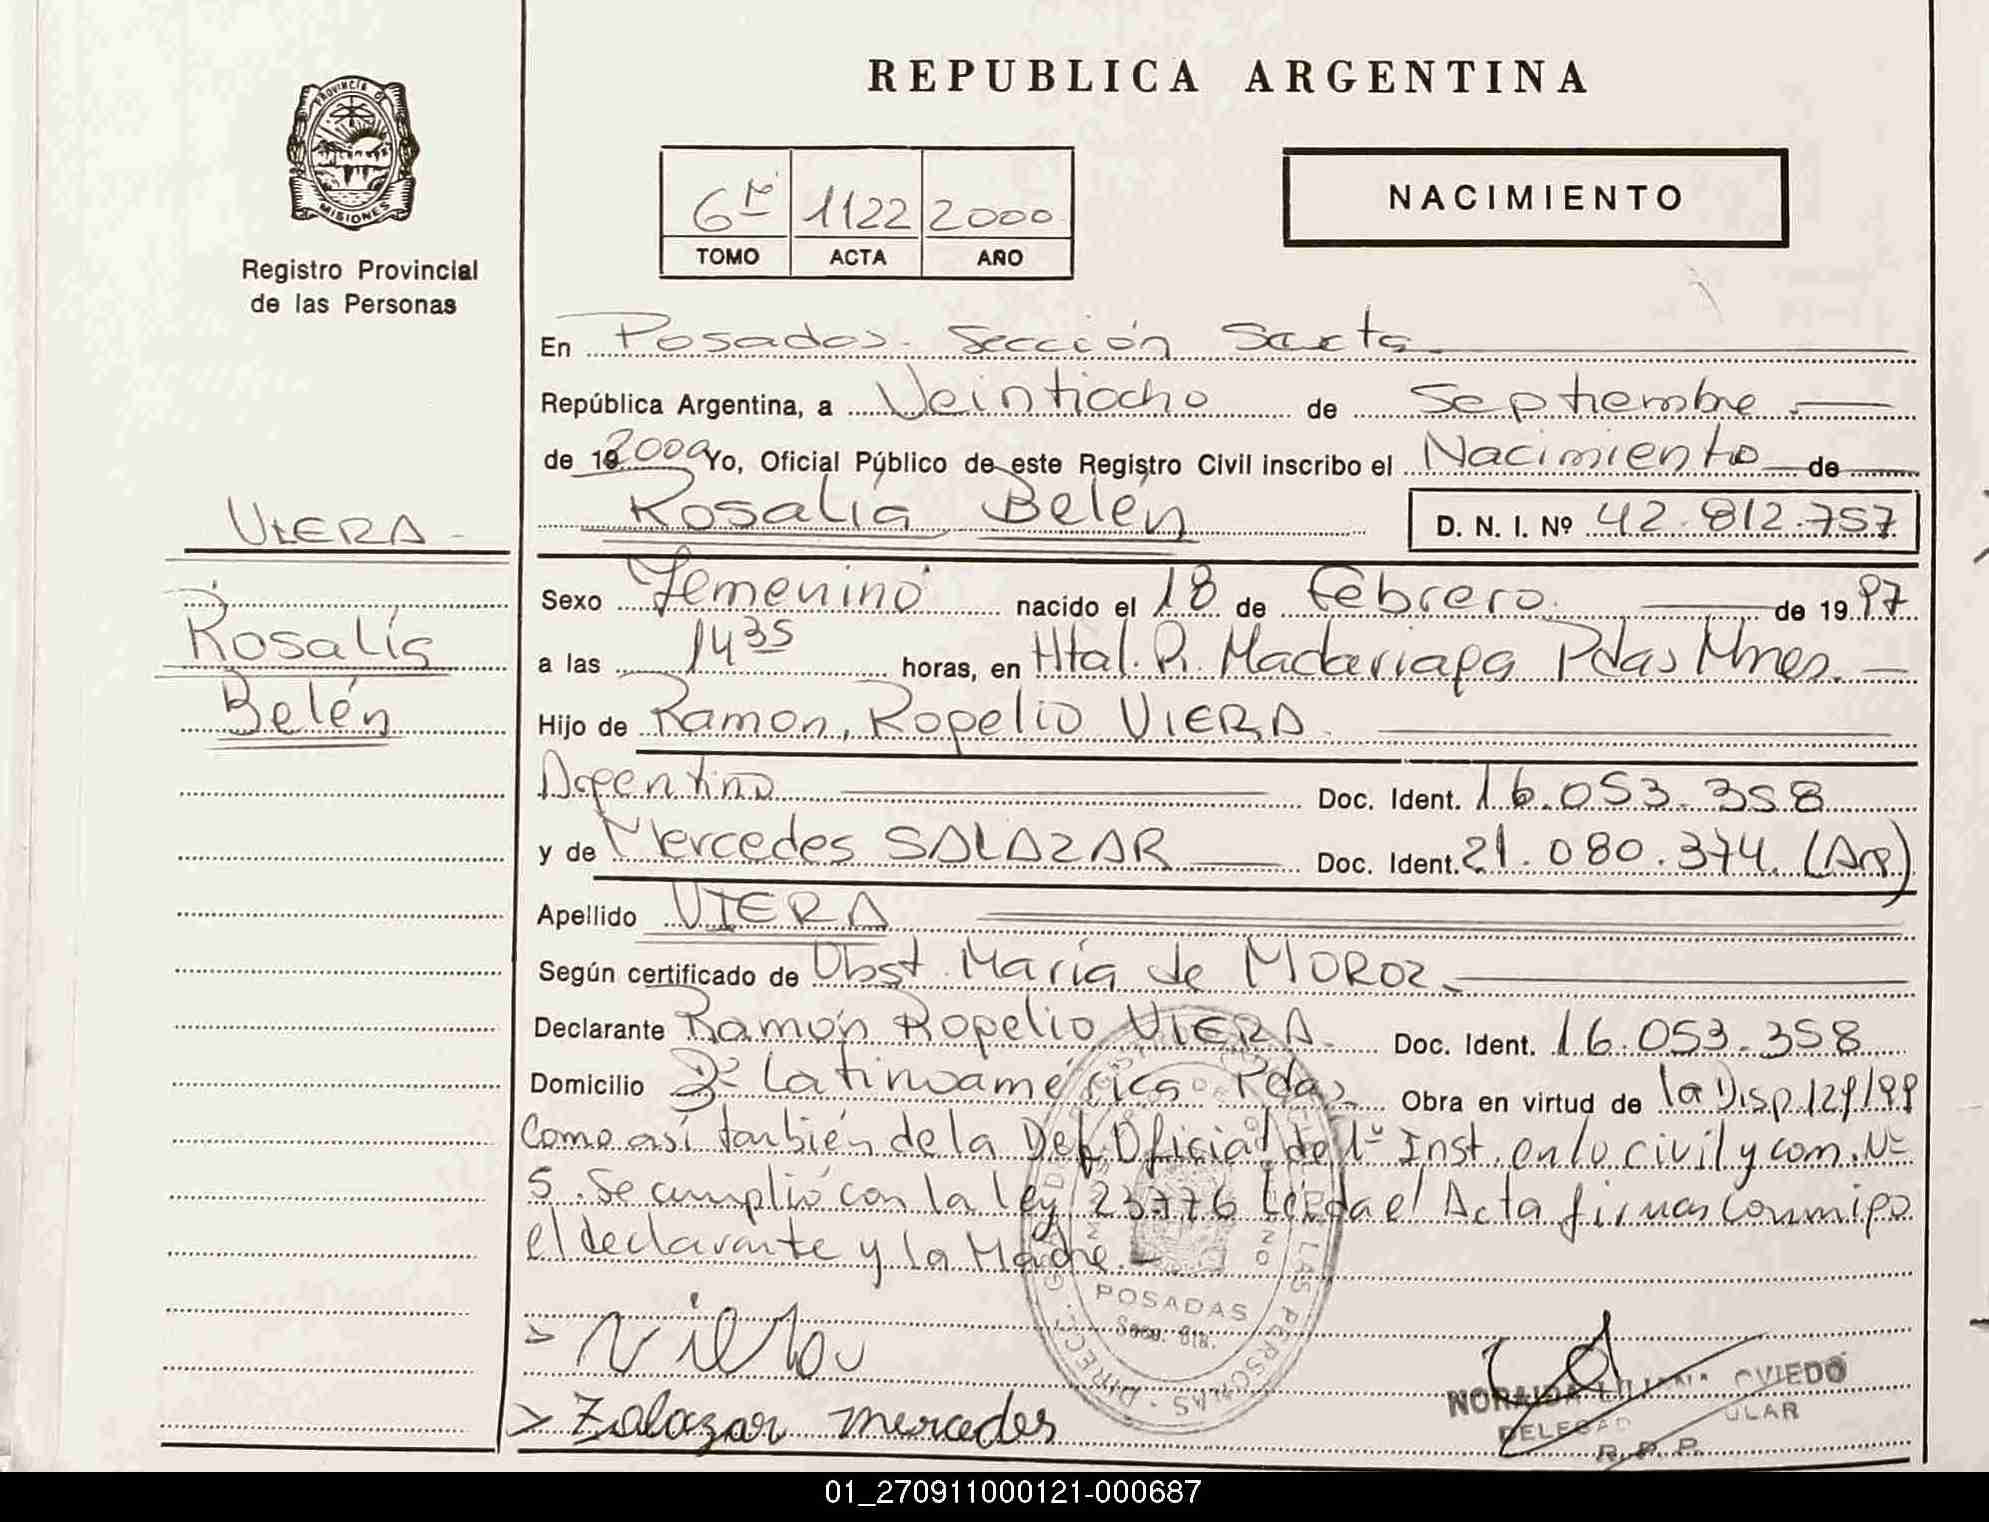 REPUBLICA ARGENTINA
PROVINCIA DE
MISIONES
Registro Provincial
de las Personas
6ta 1122 2000
TOMO ACTA AÑO
NACIMIENTO
En Posadas. Sección Sexta
República Argentina, a Veintiocho de Septiembre.
de 19 2000 Yo, Oficial Público de este Registro Civil inscribo el Nacimiento de
Rosalía Belén D. N. I. Nº 42.812.757
VIERA
Rosalía
Belén
Sexo Femenino nacido el 18 de Febrero. de 19 97
a las 14 35 horas, en Htal. R. Madariaga Pdas Mnes.
Hijo de Ramon, Rogelio VIERA
Argentino Doc. Ident. 16.053.358
y de Mercedes SALAZAR Doc. Ident. 21.080.374. (Arg)
Apellido VIERA
Según certificado de Obst. María de MOROZ
Declarante Ramón Rogelio VIERA Doc. Ident. 16.053.358
Domicilio Bº Latinoamérica Pdas Obra en virtud de la Disp 129/99
Como así también de la Def. Oficial de 1º Inst. en lo civil y com. Nº
5. Se cumplió con la ley 23776 Leída el Acta firman conmigo
el declarante y la Madre.-
POSADAS
Secc. 6ta.
LAS PERSONAS
DIRECC. G
> Zalazar mercedes
NORAIDA LILIANA OVIEDO
R. P. P.
01_270911000121-000687